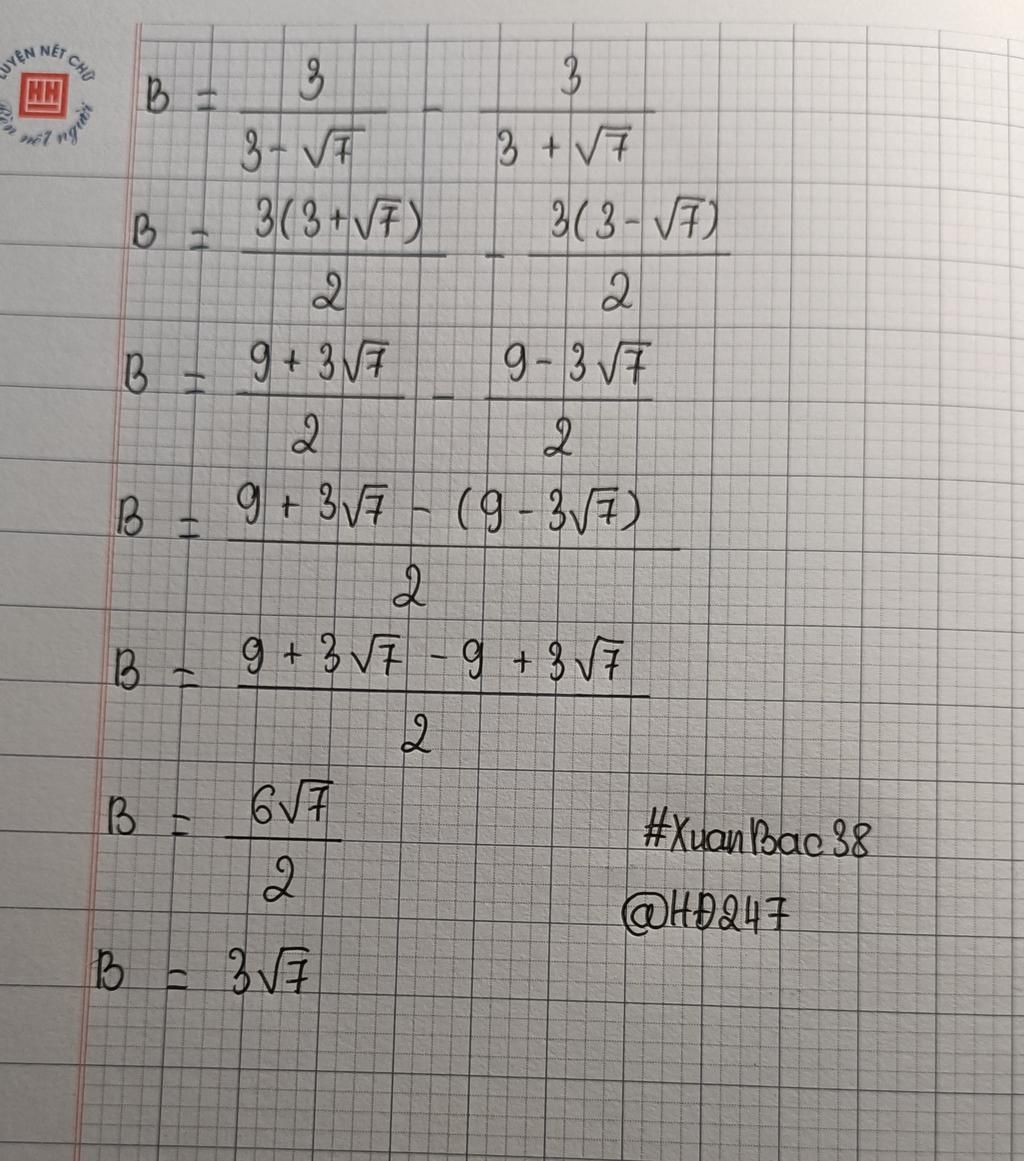 LUYỆN NÉT CHỮ
HH
Rèn nết người
B = 3/(3 - √7) - 3/(3 + √7)
B = 3(3 + √7)/2 - 3(3 - √7)/2
B = (9 + 3√7)/2 - (9 - 3√7)/2
B = (9 + 3√7 - (9 - 3√7))/2
B = (9 + 3√7 - 9 + 3√7)/2
B = 6√7/2
#XuanBac38
@HĐ247
B = 3√7